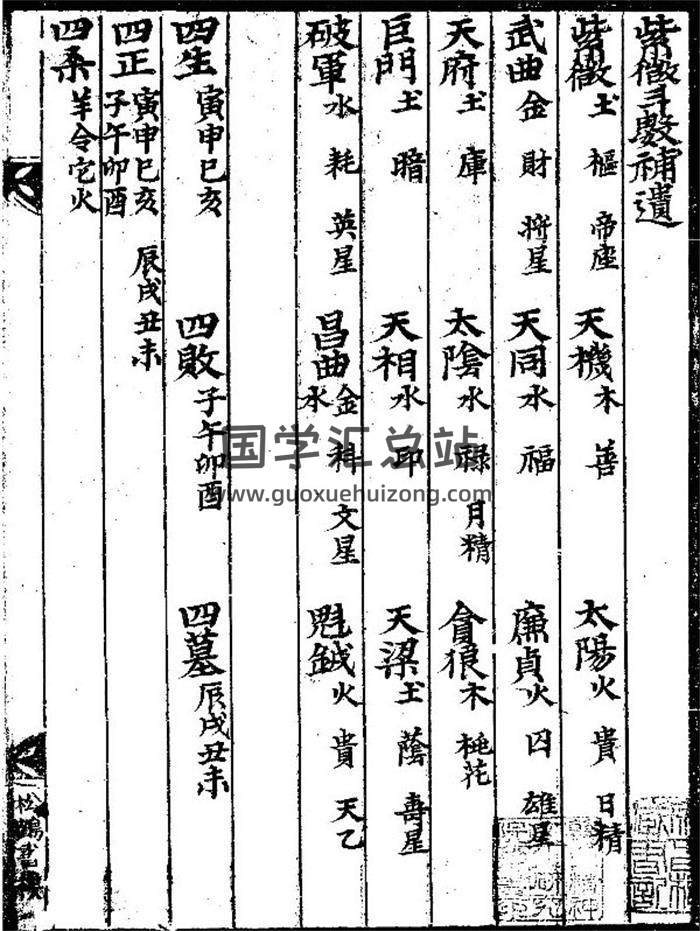 紫微斗数補遺
紫微土 樞 帝座 天機木 善 太陽火 貴 日精
武曲金 財 将星 天同水 福 廉貞火 囚 雄星
天府土 庫 太陰水 祿 月精 貪狼木 桃花
巨門土 暗 天相水 印 天梁土 蔭 壽星
破軍水 耗 英星 昌曲金水 科 文星 魁鉞火 貴 天乙
四生 寅申巳亥 四敗 子午卯酉 四墓 辰戌丑未
四正 寅申巳亥 子午卯酉 辰戌丑未
四柔 羊令它火
国学汇总站
www.guoxuehuizong.com